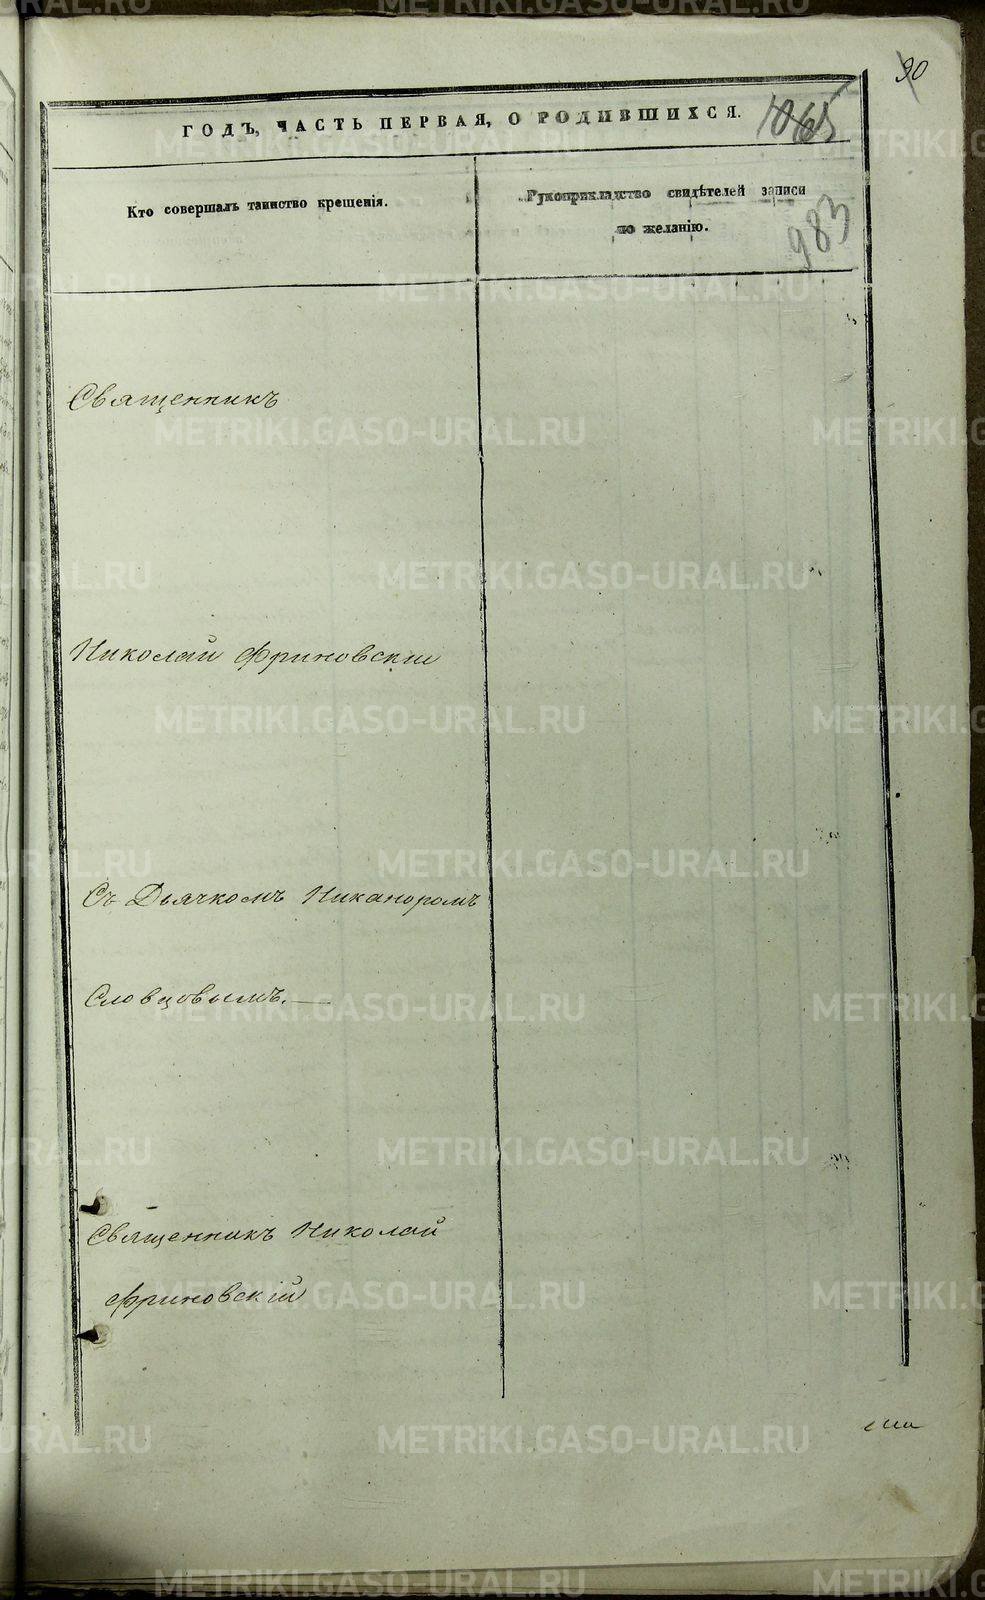 90
ГОДЪ, ЧАСТЬ ПЕРВАЯ, О РОДИВШИХСЯ.
1065
983
Кто совершалъ таинство крещенія.
Рукоприкладство свидѣтелей записи
по желанію.
Священникъ
Николай Фриновскій
Съ Дьячкомъ Никаноромъ
Словцовымъ.
Священникъ Николай
Фриновскій
METRIKI.GASO-URAL.RU